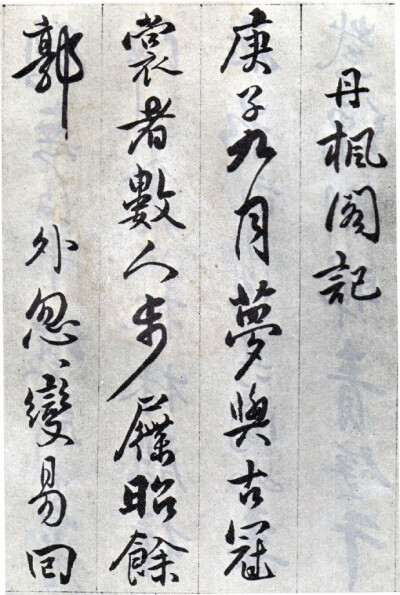 丹楓閣記
庚子九月夢與古冠
裳者數人步屧昭餘
郭 外忽〻變易回